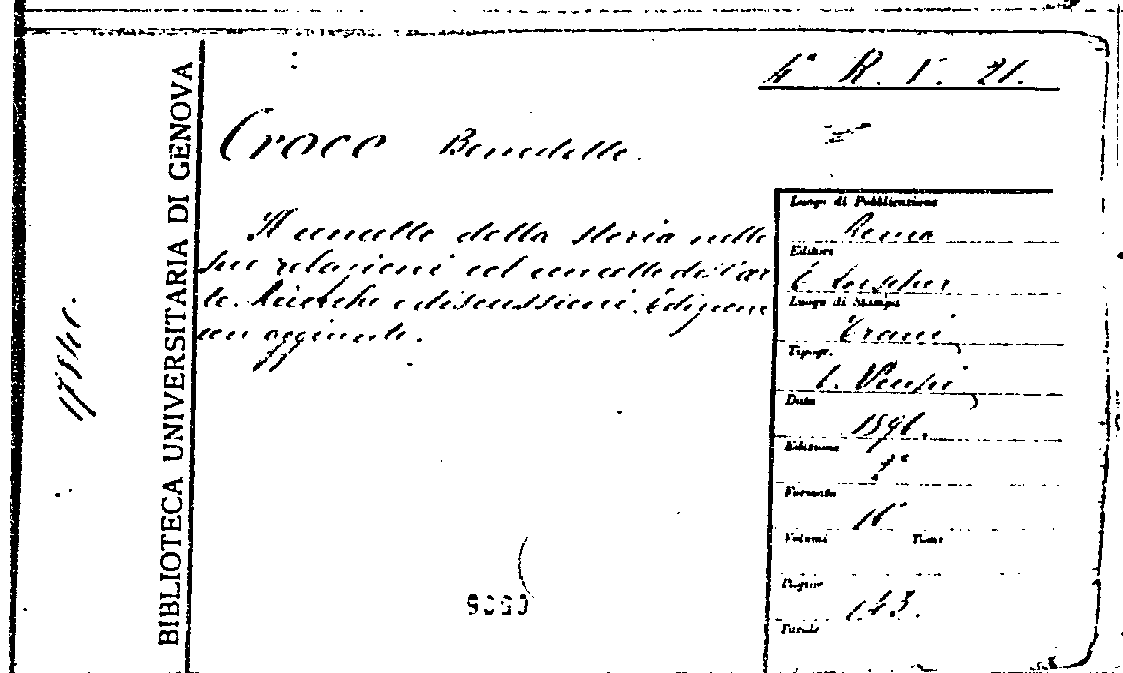 4ª R. V. 21.
BIBLIOTECA UNIVERSITARIA DI GENOVA
Croce Benedetto.
Il concetto della storia nelle
sue relazioni col concetto dell'ar
te. Ricerche e discussioni. Edizione
con aggiunte.
Luogo di Pubblicazione
Roma
Editore
E. Loescher
Luogo di Stampa
Trani,
Tipogr.
V. Vecchi,
Data
1896.
Edizione
2ª
Formato
16°
Volumi Tomi
Pagine
143.